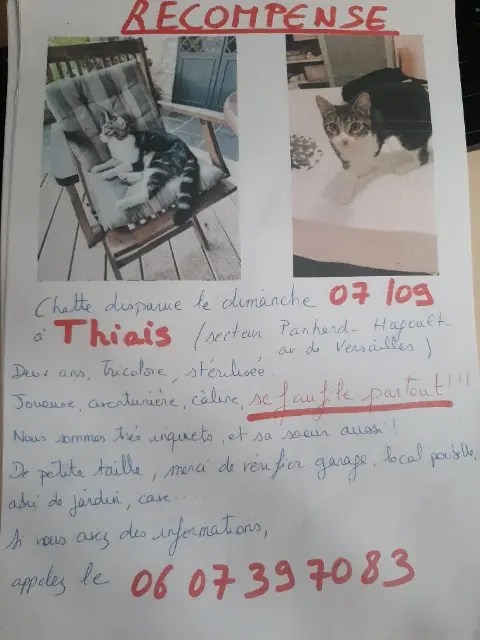 RECOMPENSE
Chatte disparue le dimanche 07/09
à Thiais (secteur Panhard - Hagoult -
av de Versailles)
Deux ans, tricolore, stérilisée.
Joueuse, aventurière, câline, se faufile partout!!!
Nous sommes très inquiets, et sa soeur aussi!
De petite taille, merci de vérifier garage, local poubelle,
abri de jardin, cave.....
Si vous avez des informations,
appelez le 06 07 39 70 83